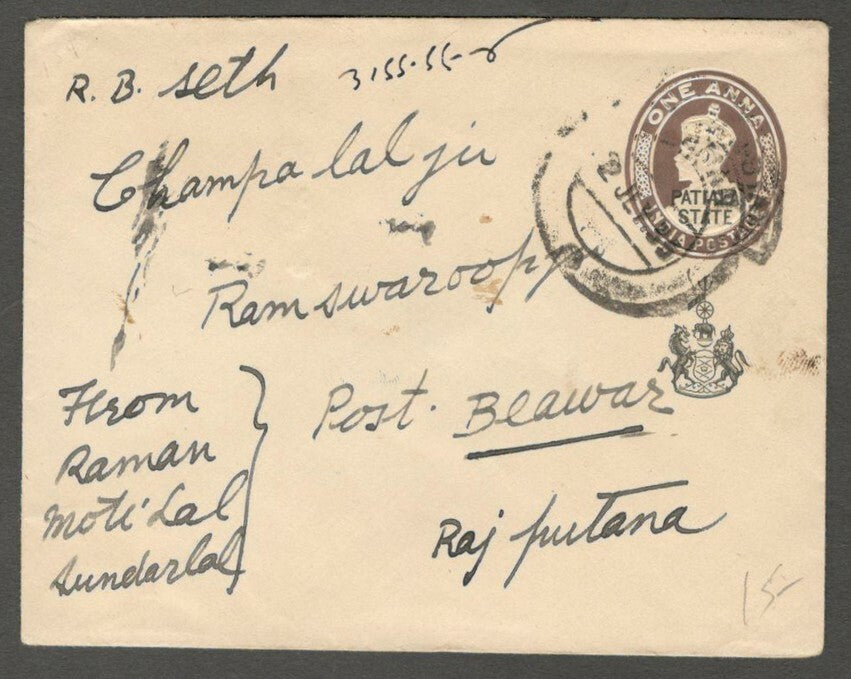 R. B. Seth
3155-55-8
Champa lal ji
Ramswaroopji
Post. Beawar
Rajputana
From
Raman
Moti Lal
Sundarlal
ONE ANNA
PATIALA
STATE
INDIA POSTAGE
15-